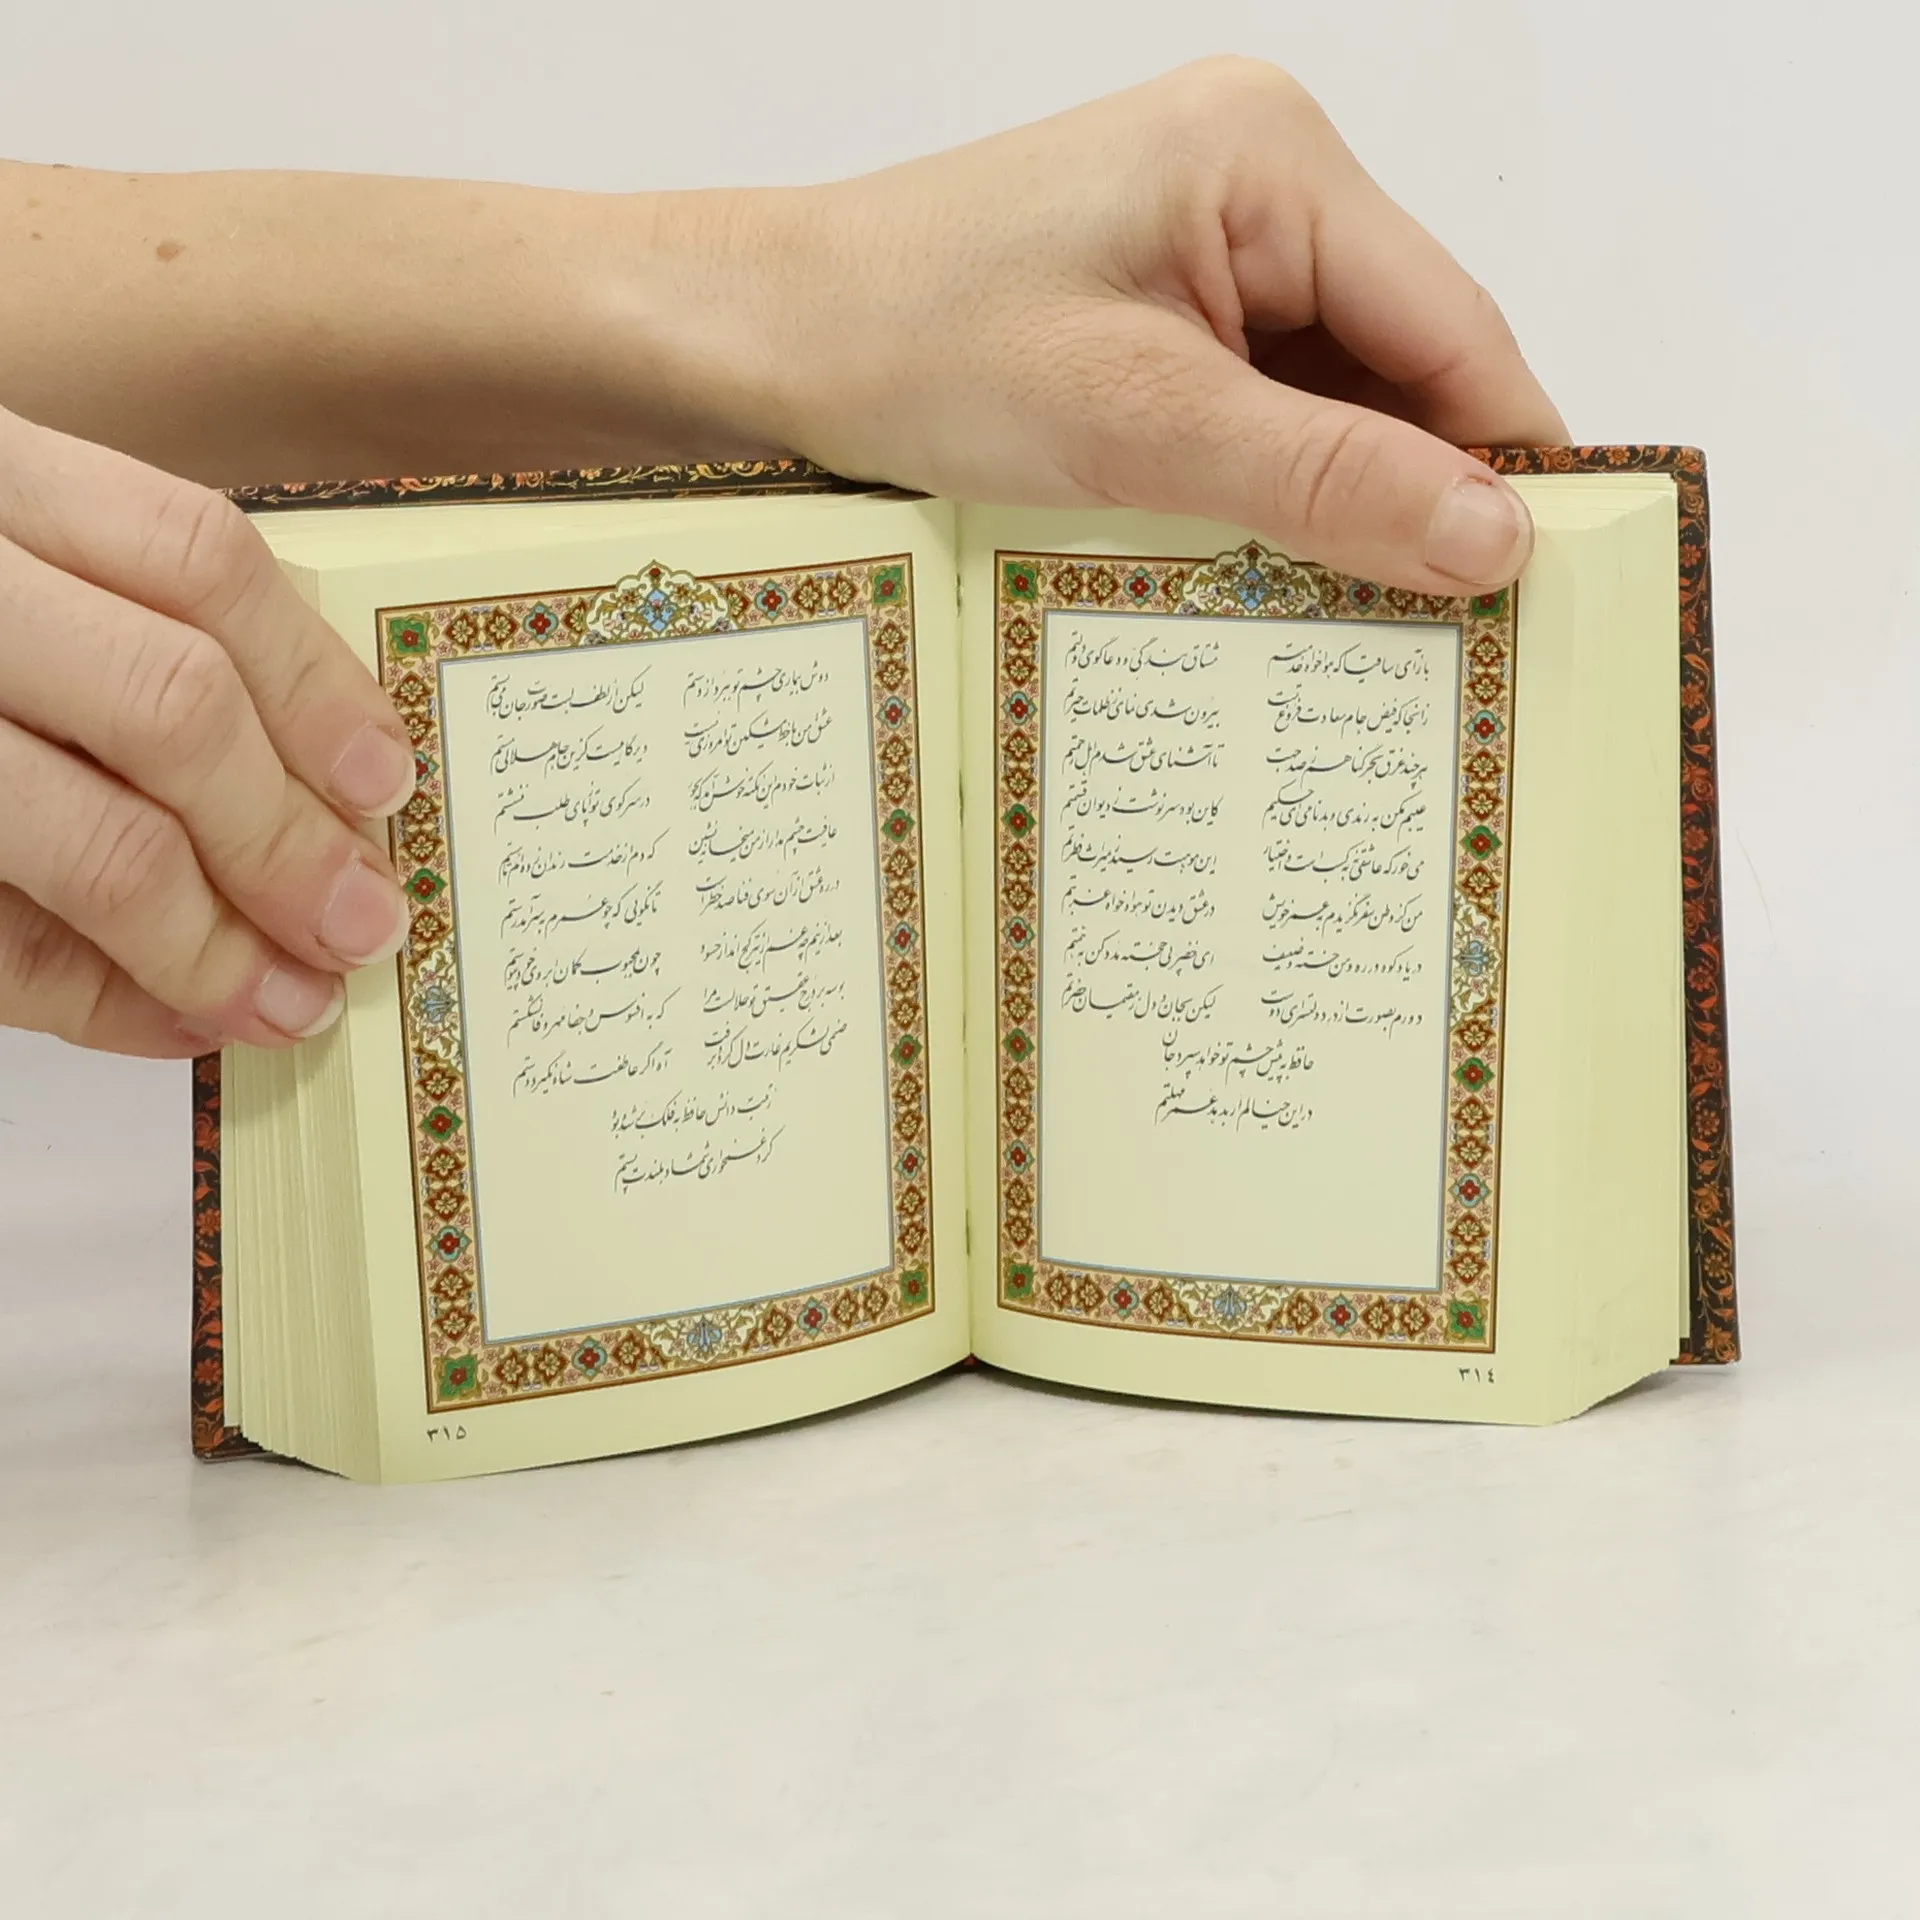 بازآی ساقیا که هواخواه خدمتم مشتاق بندگی و دعاگوی دولتم
زانجا که فیض جام سعادت فروغ تست بیرون شدی نمای ز ظلمات حیرتم
هر چند غرق بحر گناهم ز صد جهت تا آشنای عشق شدم ز اهل رحمتم
عیبم مکن به رندی و بدنامی ای حکیم کاین بود سرنوشت ز دیوان قسمتم
می خور که عاشقی نه به کسب است و اختیار این موهبت رسید ز میراث فطرتم
من کز وطن سفر نگزیدم به عمر خویش در عشق دیدن تو هواخواه غربتم
دریا و کوه در ره و من خسته و ضعیف ای خضر پی خجسته مدد کن به همتم
دورم بصورت از در دولتسرای دوست لیکن بجان و دل ز مقیمان حضرتم
حافظ به پیش چشم تو خواهد سپرد جان
در این خیالم ار بدهد عمر مهلتم
۳۱٤
دوش بیماری چشم تو ببرد از دستم لیکن از لطف لبت صورت جان می بستم
عشق من با خط مشکین تو امروزی نیست دیر گاهیست کزین جام هلالی مستم
از ثبات خودم این نکته خوش آمد که بجور در سر کوی تو از پای طلب ننشستم
عافیت چشم مدار از من میخانه نشین که دم از خدمت رندان زده ام تا هستم
در ره عشق از آن سوی فنا صد خطر است تا نگویی که چو عمرم به سر آمد رستم
بعد از اینم چه غم از تیر کج انداز حسود چون به محبوب کمان ابروی خود پیوستم
بوسه بر درج عقیق تو حلالست مرا که به افسوس و جفا مهر وفا نشکستم
صنمی لشکریم غارت دل کرد و برفت آه اگر عاطفت شاه نگیرد دستم
رتبت دانش حافظ به فلک بر شده بود
کرد غمخواری شمشاد بلندت پستم
۳۱۵